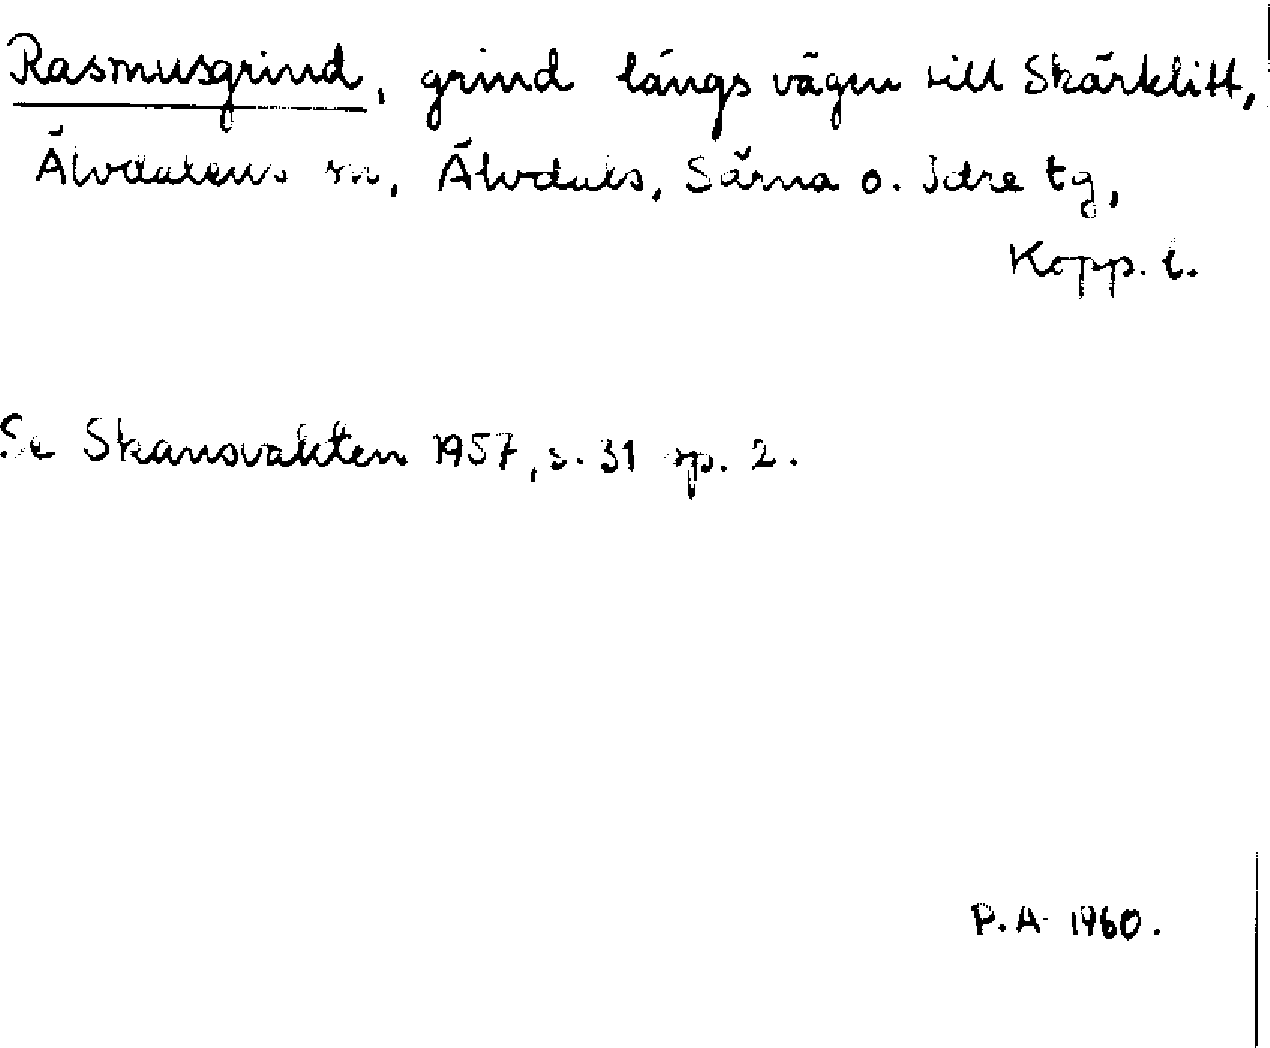 Rasmusgrind, grind längs vägen till Skärklitt,
Älvdalens sn, Älvdals, Särna o. Idre tg,
Kopp. l.
Se Skansvakten 1957, s. 31 sp. 2.
P.A. 1960.